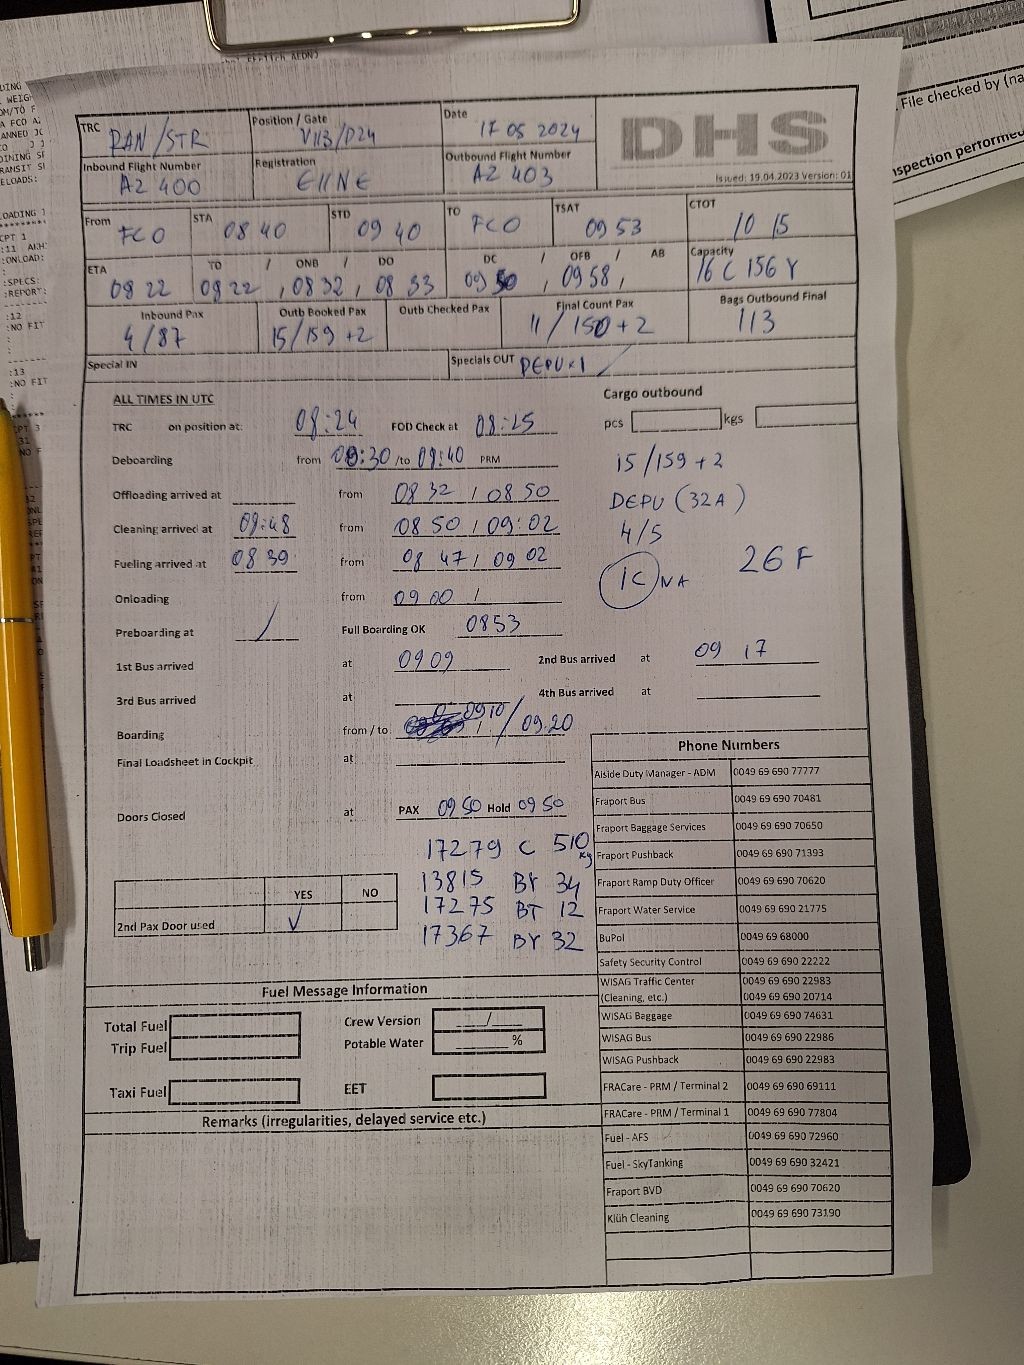 TRC RAN/STR Position / Gate V113/D24 Date 17 05 2024 DHS
Inbound Flight Number AZ 400 Registration EIINE Outbound Flight Number AZ 403 Issued: 19.04.2023 Version: 01
From FCO STA 08 40 STD 09 40 TO FCO TSAT 09 53 CTOT 10 15
ETA 08 22 TO / ONB / DO 08 22, 08 32, 08 33 DC / OFB / AB 09 50, 09 58, Capacity 16 C 156 Y
Inbound Pax 4/87 Outb Booked Pax 15/159 +2 Outb Checked Pax Final Count Pax 11/150+2 Bags Outbound Final 113
Special IN Specials OUT DEPU×1
ALL TIMES IN UTC Cargo outbound
TRC on position at: 08:24 FOD Check at 08:25 pcs kgs
Deboarding from 08:30 /to 08:40 PRM 15/159+2
Offloading arrived at from 08 32 / 08 50 DEPU (32A)
Cleaning arrived at 08:48 from 08 50 / 09:02 4/5
Fueling arrived at 08 39 from 08 47 / 09 02 IC NA 26 F
Onloading from 09 00 /
Preboarding at / Full Boarding OK 0853
1st Bus arrived at 0909 2nd Bus arrived at 09 17
3rd Bus arrived at 4th Bus arrived at
Boarding from / to 0910 / 09.20
Final Loadsheet in Cockpit at
Doors Closed at PAX 09 50 Hold 09 50
17279 C 510 kg
13815 BY 34
17275 BT 12
17367 BY 32
YES NO
2nd Pax Door used ✓
Phone Numbers
Aiside Duty Manager - ADM 0049 69 690 77777
Fraport Bus 0049 69 690 70481
Fraport Baggage Services 0049 69 690 70650
Fraport Pushback 0049 69 690 71393
Fraport Ramp Duty Officer 0049 69 690 70620
Fraport Water Service 0049 69 690 21775
BuPol 0049 69 68000
Safety Security Control 0049 69 690 22222
WISAG Traffic Center 0049 69 690 22983
(Cleaning, etc.) 0049 69 690 20714
WISAG Baggage 0049 69 690 74631
WISAG Bus 0049 69 690 22986
WISAG Pushback 0049 69 690 22983
FRACare - PRM / Terminal 2 0049 69 690 69111
FRACare - PRM / Terminal 1 0049 69 690 77804
Fuel - AFS 0049 69 690 72960
Fuel - SkyTanking 0049 69 690 32421
Fraport BVD 0049 69 690 70620
Klüh Cleaning 0049 69 690 73190
Fuel Message Information
Total Fuel Crew Version /
Trip Fuel Potable Water %
Taxi Fuel EET
Remarks (irregularities, delayed service etc.)
File checked by (na
nspection performed